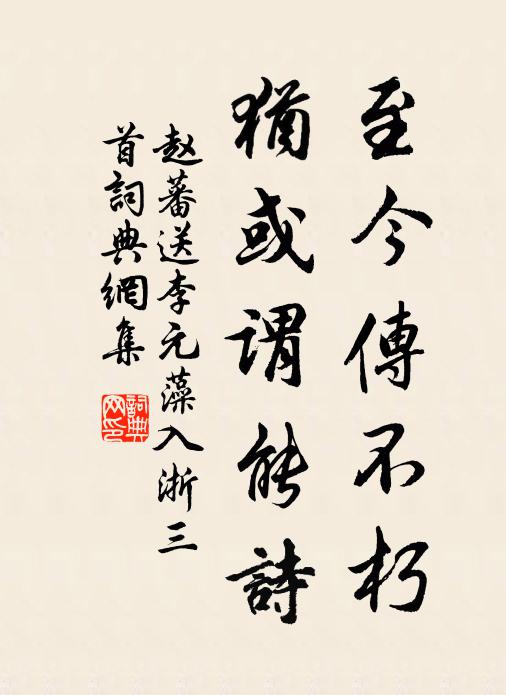 至今傳不朽
猶或謂能詩
赵蕃送李元藻入浙三
首詞典網集
詞典网印